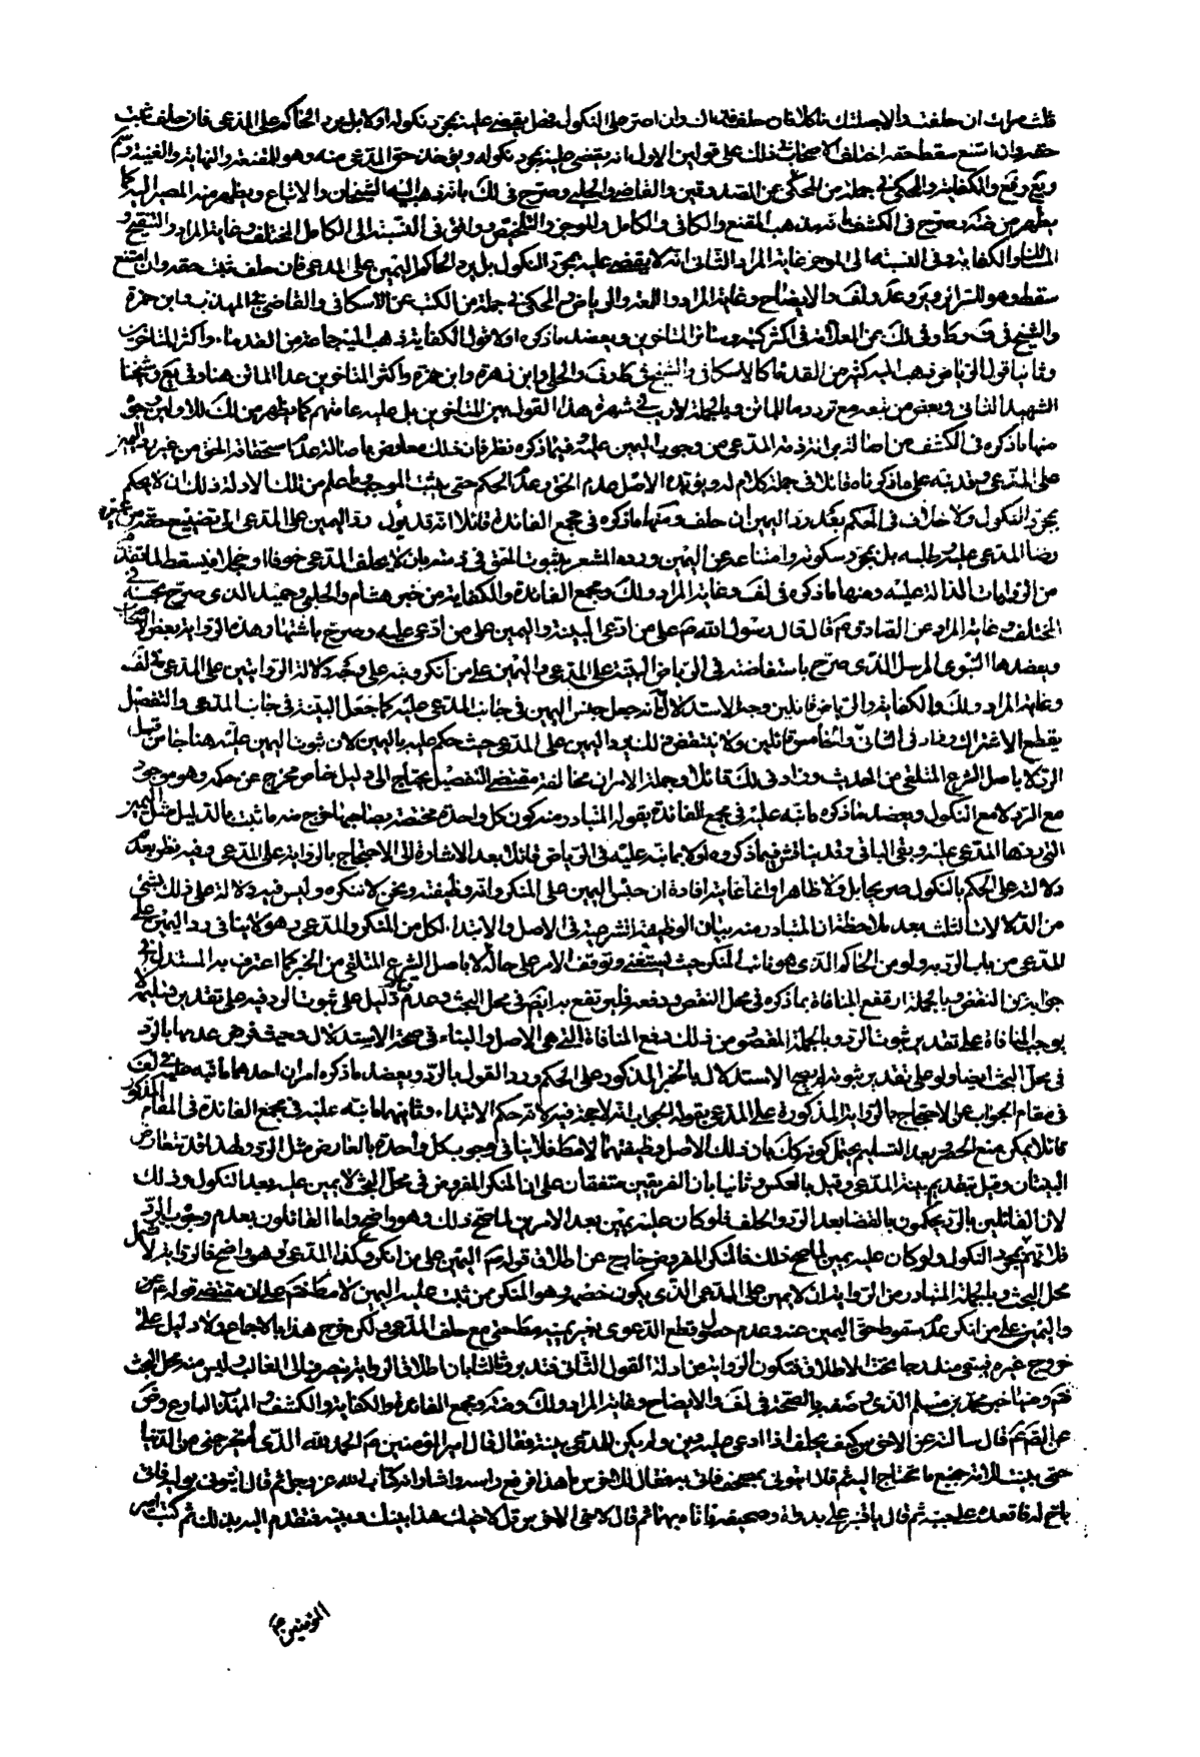 ثلث مرات ان حلفت والا جعلتك ناكلا فان حلف فذاك وان اصر على النكول فهل يقضى عليه بمجرد نكوله او لا بل يرد الحاكم على المدعى فان حلف ثبت
حقه وان امتنع سقط حقه اختلف الاصحاب فى ذلك على قولين الاول انه يقضى عليه بمجرد نكوله ويؤخذ حق المدعى منه وهو للمقنعة والنهاية والغنية
والكفاية والمحكى فى جملة من المحكى عن الصدوقين والقاضى والحلبى وصرح فى لك بانه ذهب اليه الشيخان والاتباع ويظهر منه المصير اليه كما
يظهر من صرح فى الكشف بانه مذهب المقنع والكافى والكامل والموجز والتلخيص ووافق فى النسبة الى الكامل المختلف وغاية المراد والتنقيح و
المسالك والكفاية وفى النسبة الى الموجز غاية المراد الثانى انه لا يقضى عليه بمجرد النكول بل يرد الحاكم اليمين على المدعى فان حلف ثبت حقه وان امتنع
سقط وهو للسرائر ويع وعد ولف والايضاح وغاية المراد والرياض والمحكى فى جملة من الكتب عن الاسكافى والقاضى فى المهذب وابن حمزة
والشيخ فى ف وط وفى لك عن العلامة فى اكثر كتبه وسائر المتاخرين ويعضد ما ذكره اولا قول الكفاية ذهب اليه جماعة من القدماء واكثر المتاخرين
وثانيا قول الرياض ذهب اليه كثير من القدماء كالاسكافى والشيخ فى ط وف والحلى وابن زهرة وابن حمزة واكثر المتاخرين عدا الماتن هنا وفى يع وشيخنا
الشهيد الثانى وبعض من تبعه مع تردد ما للماتن وبالجملة لا ريب فى شهرة هذا القول بين المتاخرين بل عليه عامتهم كما يظهر من لك للاولين وجوه
منها ما ذكره فى الكشف من اصالة براءة ذمة المدعى من وجوب اليمين عليه وفيما ذكره نظر فان ذلك معارض باصالة عدم استحقاقه الحق من غير رد اليمين
على المدعى وقد نبه على ما ذكرناه قائلا فى جملة كلام له ويؤيده الاصل عدم الحق وعدم الحكم حتى يثبت الموجب وما علم من تلك الادلة ذلك ان لا يحكم
بمجرد النكول ولا خلاف فى الحكم بعد رد اليمين ان حلف ومنها ما ذكره فى مجمع الفائدة قائلا انه قد يؤل رد اليمين على المدعى الى تضييع حقه من غير
رضا المدعى عليه وطلبه بل بمجرد سكوته وامتناعه عن اليمين ورده المشعر بثبوت الحق فى ذمته بان لا يحلف المدعى خوفا او خجلا فيسقط
من الروايات الدالة عليه ومنها ما ذكره فى لف وغاية المراد ولك ومجمع الفائدة والكفاية من خبر هشام والحلبى وجميل الذى صرح بحسنه فى
المختلف وغاية المراد عن الصادق ع قال قال رسول الله ص على من ادعى البينة واليمين على من ادعى عليه وصرح باشتهار هذه الرواية بعض الاصحاب
ويعضدها النبوى المرسل الذى صرح باستفاضته فى الرياض البينة على المدعى واليمين على من انكر ونبه على وجه دلالة الروايتين على المدعى فى لف
وغاية المراد ولك والكفاية والرياض قائلين وجه الاستدلال انه جعل جنس اليمين فى جانب المدعى عليه كما جعل البينة فى جانب المدعى والتفصيل
يقطع الاشتراك وزاد فى الثانى والخامس قائلين ولا ينتقض ذلك برد اليمين على المدعى حيث حكم عليه باليمين لان ثبوت اليمين عليه هنا جاء من قبل
الرد لا باصل الشرع المتلقى من الحديث وزاد فى لك قائلا وجملة الامر ان مخالفة مقتضى التفصيل يحتاج الى دليل خاص مخرج عن حكمه وهو موجود
مع الرد لا مع النكول ويعضد ما ذكره ما نبه عليه فى مجمع الفائدة بقوله المتبادر منه كون كل واحدة مختصة بصاحبها خرج منه ما ثبت بالدليل مثل اليمين
التى ردها المدعى عليه وبقى الباقى وقد يناقش فيما ذكروه اولا بما نبه عليه فى الرياض قائلا بعد الاشارة الى الاحتجاج بالرواية على المدعى وفيه نظر بعدم
دلالته على الحكم بالنكول صريحا بل ولا ظاهرا وانما غايته افادة ان جنس اليمين على المنكر وانه وظيفته ونحن لا ننكره وليس فيه دلالة على ذلك بشئ
من الدلالات الثلث بعد ملاحظة ان المتبادر منه بيان الوظيفة الشرعية فى الاصل والابتداء لكل من المنكر والمدعى وهو لا ينافى رد اليمين على
المدعى من باب الرد ولو من الحاكم الذى هو نائب المنكر حيث يستغنى وتوقف الامر على حاله لا باصل الشرع المتلقى من الخبر كما اعترف به المستدل فى
جوابه عن النقض وبالجملة ارتفع المنافاة بما ذكره فى محل النقض ودفعه فليرتفع به ايضا فى محل البحث وعدم دليل على ثبوت الرد فيه على تقدير تسليمه لا
يوجب المنافاة على تقدير ثبوت الرد وبالجملة المقصود من ذلك دفع المنافاة التى هى الاصل والبناء فى صحة الاستدلال وحيث فرض عدمها بالرد
فى محل البحث ايضا ولو على تقدير ثبوته لم يصح الاستدلال بالخبر المذكور على الحكم ورد القول بالرد ويعضد ما ذكره امران احدهما ما نبه عليه فى لف
فى مقام الجواب عن الاحتجاج بالرواية المذكورة على المدعى بقوله الجواب انه لا حجة فيه لانه حكم الابتداء وثانيهما ما نبه عليه فى مجمع الفائدة فى المقام المذكور
قائلا يمكن منع الحصر وبعد التسليم يحتمل كونه كك بان ذلك الاصل وظيفتهما لا مط فلا ينافى وجوب كل واحدة بالعارض مثل الرد ولهذا قد تتعارض
البينتان وقيل بتقديم بينة المدعى وقيل بالعكس وثانيا بان الفريقين متفقان على ان المنكر المفروض فى محل البحث لا يمين عليه وبعد النكول وذلك
لان القائلين بالرد يحكمون بالقضاء بعد الرد والحلف فلو كان عليه يمين بعد الامرين لما صح ذلك وهو واضح واما القائلون بعدم وجوب الرد
فلانهم بمجرد النكول ولو كان عليه يمين لما صح ذلك فالمنكر المفروض خارج عن اطلاق قولهم اليمين على من انكر وكذا المدعى وهو واضح فالرواية لا تشمل
محل البحث وبالجملة المتبادر من الرواية ان لا يمين على المدعى الذى يكون خصمه وهو المنكر ممن ثبت عليه اليمين لا مطلقا فتم على ان مقتضى قوله ص
واليمين على من انكر عدم سقوط حق اليمين عنه وعدم حصول قطع الدعوى بغير يمينه مطلقا حتى مع حلف المدعى ولكن خرج هذا بالاجماع ولا دليل على
خروج غيره فيبقى مندرجا تحت الاطلاق فتكون الرواية من ادلة القول الثانى فتدبر وثالثا بان اطلاق الرواية ينصرف الى الغالب وليس منه محل البحث
فتم ومنها خبر محمد بن مسلم الذى وصف بالصحة فى لف والايضاح وغاية المراد ولك وضة ومجمع الفائدة والكفاية والكشف والمهذب البارع وض
عن الصم قال سالته عن الاخرس كيف يحلف اذا ادعى عليه دين ولم يكن للمدعى بينة فقال قال امير المؤمنين ع الحمد لله الذى لم يخرجنى من الدنيا
حتى بينت للامة جميع ما تحتاج اليه ثم قال ائتونى بمصحف فاتى به فقال للاخرس ما هذا فرفع راسه واشار انه كتاب الله عز وجل ثم قال ائتونى بوليه فاتى
باخ له فاقعده على جنبه ثم قال يا قنبر على بدواة وصحيفة فاتاه بهما ثم قال لاخى الاخرس قل لاخيك هذا بينك وبينه فتقدم اليه بذلك ثم كتب امير
المؤمنين ع